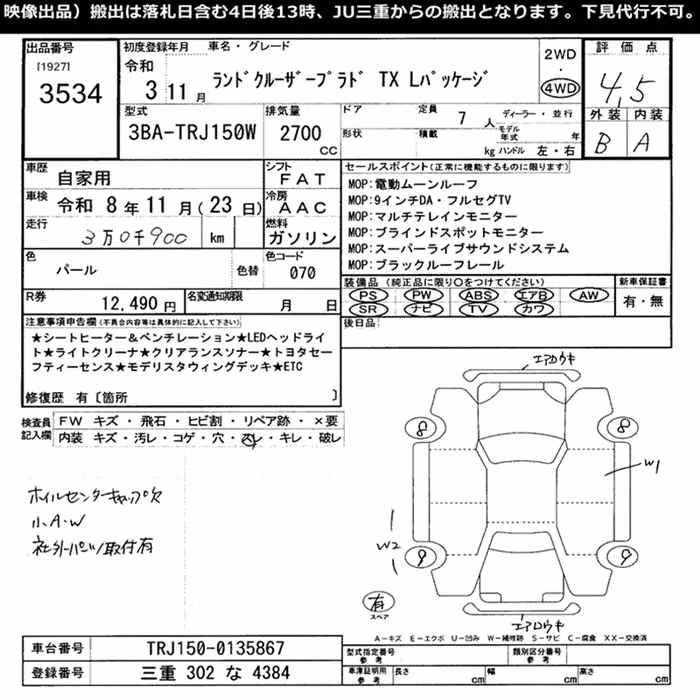 映像出品）搬出は落札日含む4日後13時、JU三重からの搬出となります。下見代行不可。
出品番号
[1927]
3534
初度登録年月
令和
3 11 月
車名・グレード
ランドクルーザープラド TX Lパッケージ
2WD
・
4WD
評価点
4.5
外装 内装
B A
型式
3BA-TRJ150W
排気量
2700
CC
ドア
形状
定員
7 人
積載
kg
ディーラー・並行
モデル年式 年
ハンドル 左・右
車歴
自家用
シフト
FAT
車検
令和 8 年 11 月 ( 23 日)
冷房
AAC
走行
3万0千900 km
燃料
ガソリン
色
パール
色替
色コード
070
R券
12,490 円
名変通知期限
月 日
セールスポイント(正常に機能するものに限ります)
MOP:電動ムーンルーフ
MOP:9インチDA・フルセグTV
MOP:マルチテレインモニター
MOP:ブラインドスポットモニター
MOP:スーパーライブサウンドシステム
MOP:ブラックルーフレール
装備品(純正品に限り○をつけてください)
PS PW ABS エアB AW
SR ナビ TV カワ
新車保証書
有・無
後日品
注意事項申告欄(不具合内容等は具体的に記入して下さい)
★シートヒーター&ベンチレーション★LEDヘッドライ
ト★ライトクリーナ★クリアランスソナー★トヨタセー
フティーセンス★モデリスタウィングデッキ★ETC
修復歴 有〔箇所 〕
検査員
記入欄
FW キズ・飛石・ヒビ割・リペア跡・×要
内装 キズ・汚レ・コゲ・穴・スレ・キレ・破レ
ホイルセンターキャップ欠
小A.W
社外パーツ取付有
エアロウキ
8 8
W1
W2
9 9
有
スペア
エアロウキ
A－キズ E－エクボ U－凹み W－補修跡 S－サビ C－腐食 XX－交換済
車台番号
TRJ150-0135867
登録番号
三重 302 な 4384
型式指定番号
参考
類別区分番号
参考
車庫証明用
参考
長さ cm
幅 cm
高さ cm